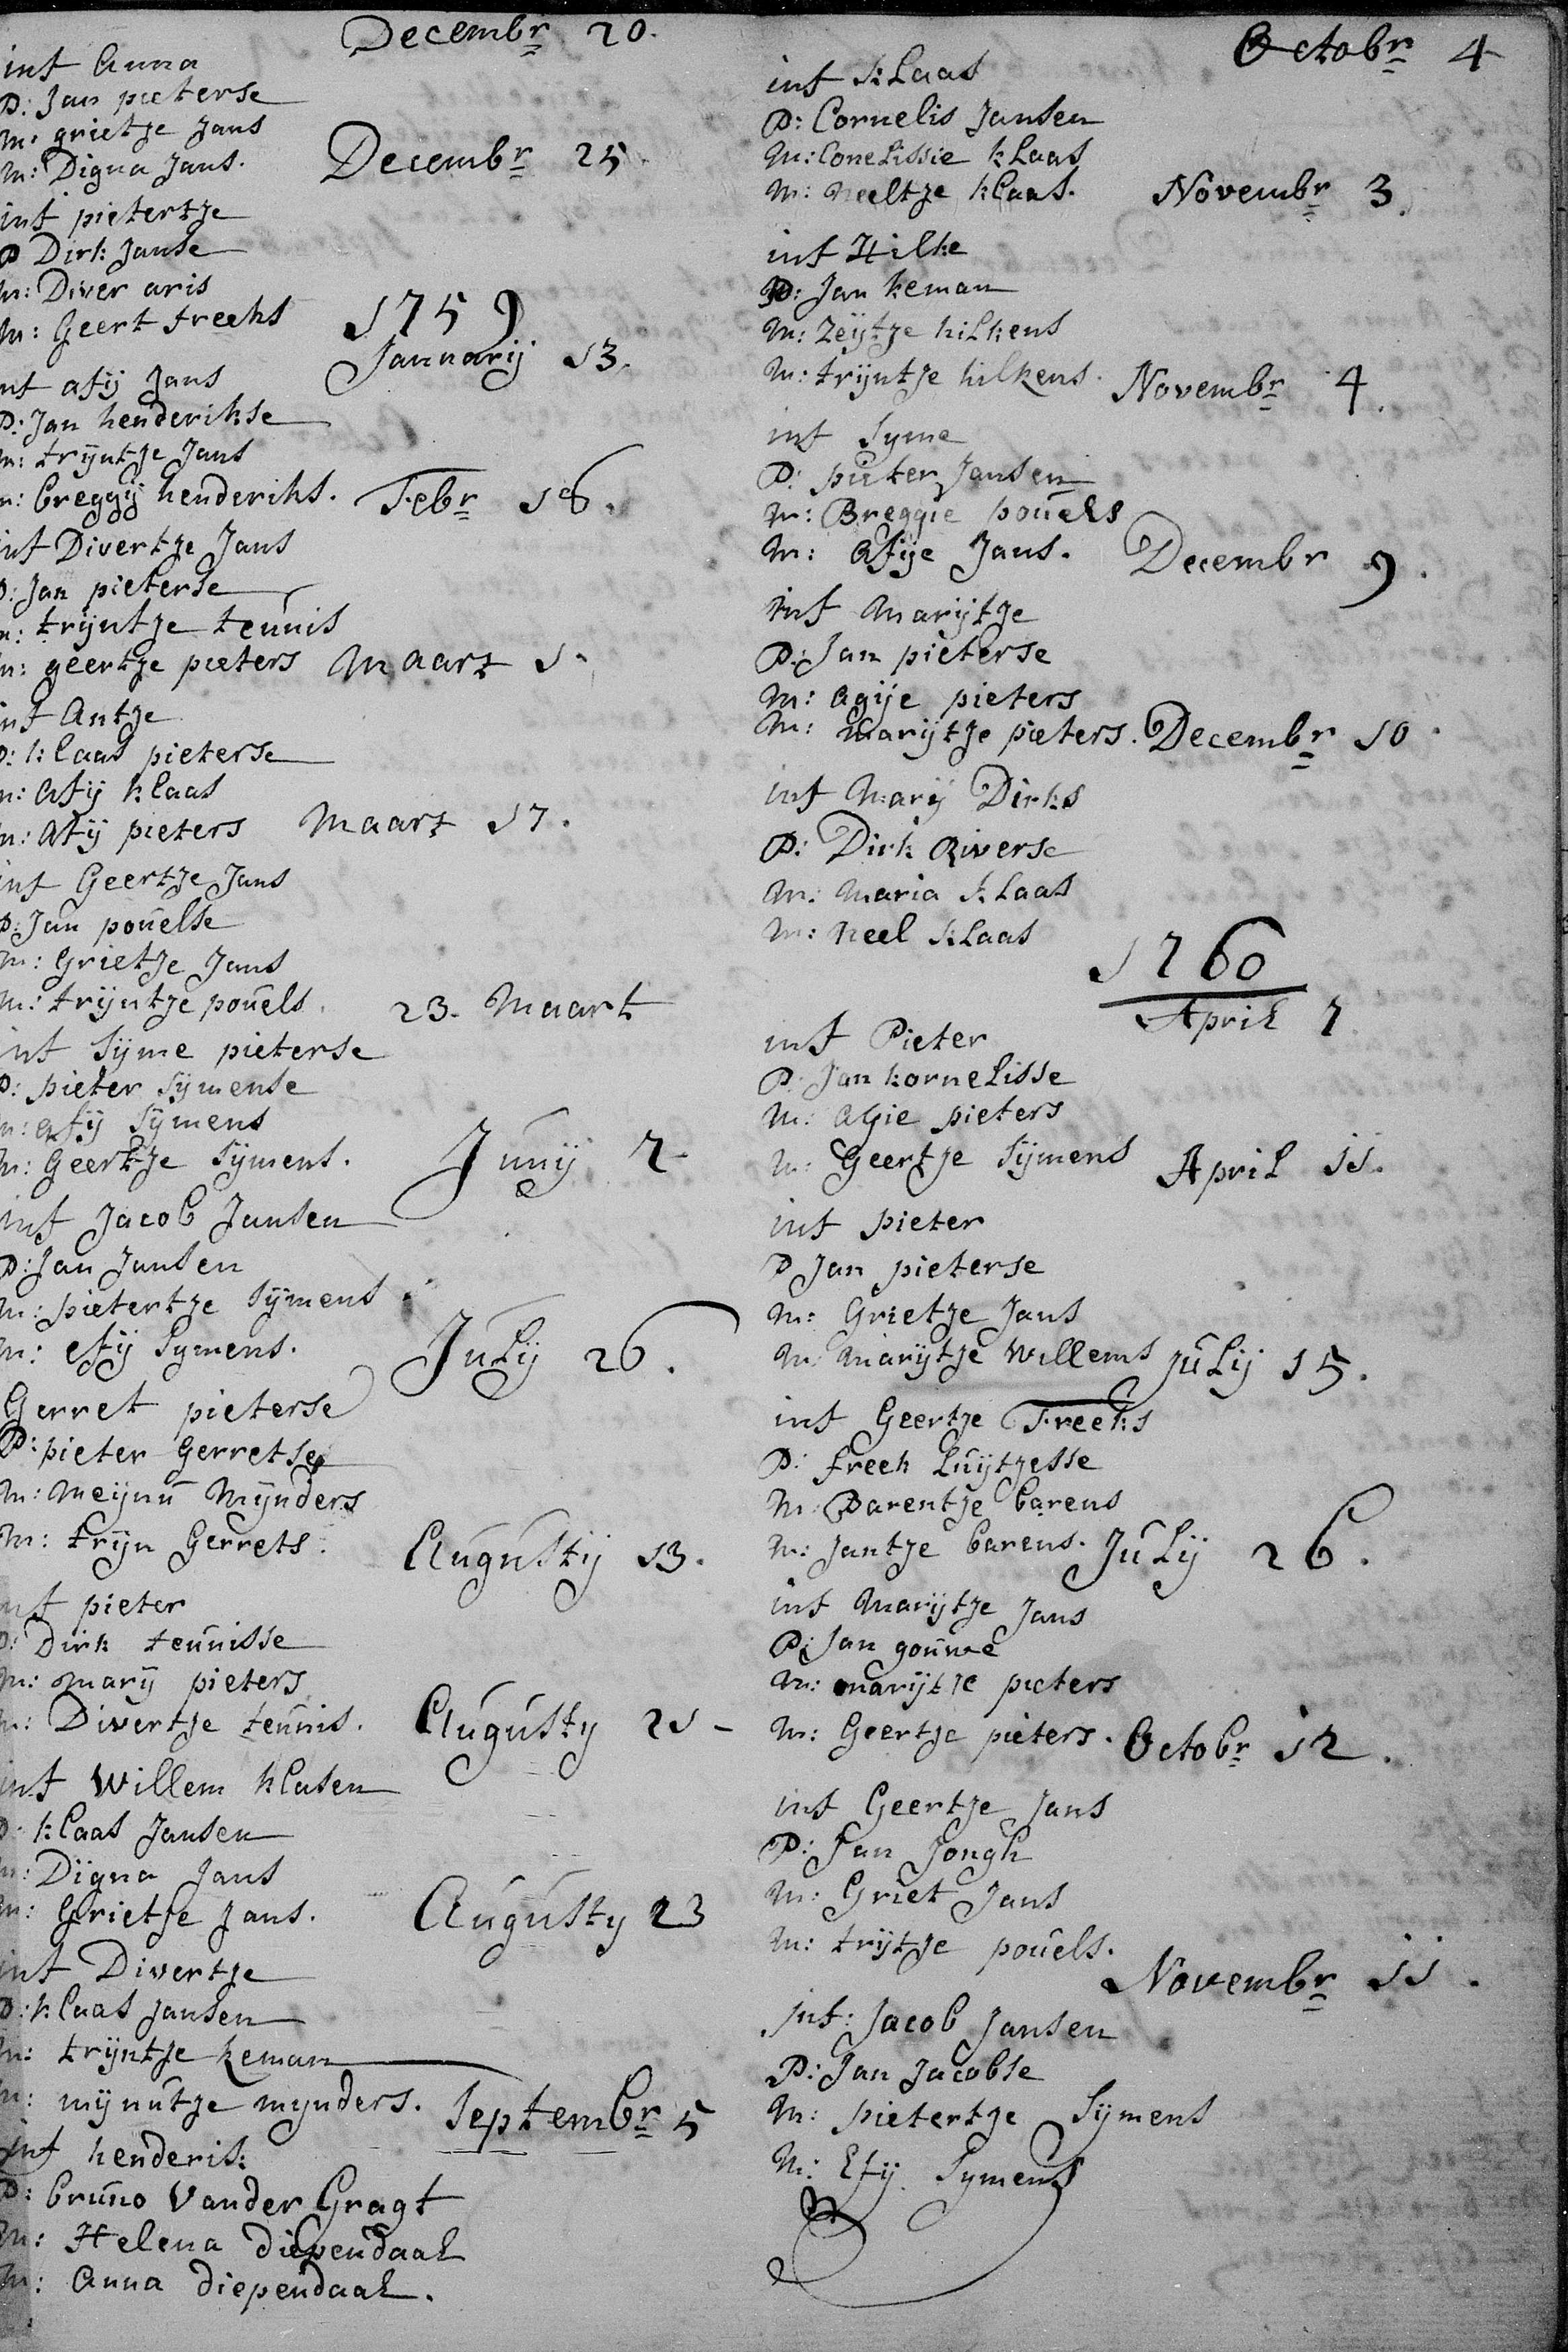 Decembr 20.
inf Anna
P: Jan pieterse
m: grietje Jans
m: Digna Jans.
Decembr 25.
inf pietertje
P Dirk Janse
m: Diver aris
m: Geert freeks
1759
Januarij 13.
inf afij Jans
P: Jan henderikse
m: trijntje Jans
m: breggij henderiks.
Febr 16.
inf Divertje Jans
P: Jan pieterse
m: trijntje teunis
m: geertje pieters
Maart 1.
inf Antje
P: klaas pieterse
m: Afij klaas
m: Afij pieters
Maart 17.
inf Geertje Jans
P: Jan pouelse
m: Grietje Jans
m: trijntje pouels.
23. Maart
inf Sijme pieterse
P: pieter Sijmense
m: afij Sijmens
m: Geertje Sijmens.
Junij 2.
inf Jacob Jansen
P: Jan Jansen
m: pietertje Sijmens
m: efij Symens.
Julij 26.
Gerret pieterse
P: pieter Gerretse
m: Meijnu Mijnders
m: trijn Gerrets.
Augustij 13.
inf pieter
P: Dirk teunisse
m: marij pieters
m: Divertje teunis.
Augusty 21 -
inf Willem klasen
P. klaas Jansen
m: Digna Jans
m: Grietje Jans.
Augusty 23
inf Divertje
P: klaas Jansen
m: trijntje keman
m: mijnutje mynders.
Septembr 5
inf henderik
P: bruno Vander Gragt
m: Helena diependaal
m: Anna diependaal.
Octobr 4
inf Klaas
P: Cornelis Jansen
m: Conelissie klaas
m: neeltje klaas.
Novembr 3.
inf Hilke
P: Jan keman
m: Zeijtje hilkens
m: trijntje hilkens.
Novembr 4.
inf Syme
P: pieter Jansen
m: Breggie pouels
m: Afije Jans.
Decembr 9.
inf Marijtje
P: Jan pieterse
m: Agije pieters
m: Marijtje pieters.
Decembr 10.
inf Marij Dirks
P: Dirk Riverse
m: Maria Klaas
m: Neel Klaas
1760
April 7
inf Pieter
P: Jan kornelisse
m: Agie pieters
m: Geertje Sijmens
April 11.
inf pieter
P Jan pieterse
m: Grietje Jans
m: Marijtje Willems
Julij 15.
inf Geertje Freeks
P: freek Luijtjesse
m: Barentje barens
m: Jantje barens.
Julij 26.
inf Marijtje Jans
P: Jan gouwe
m: marijtje pieters
m: Geertje pieters.
Octobr 12.
inf Geertje Jans
P: Jan Jongh
m: Griet Jans
m: trijtje pouels.
Novembr 11.
inf: Jacob Jansen
P: Jan Jacobse
m: pietertje Sijmens
m: Efij Symens